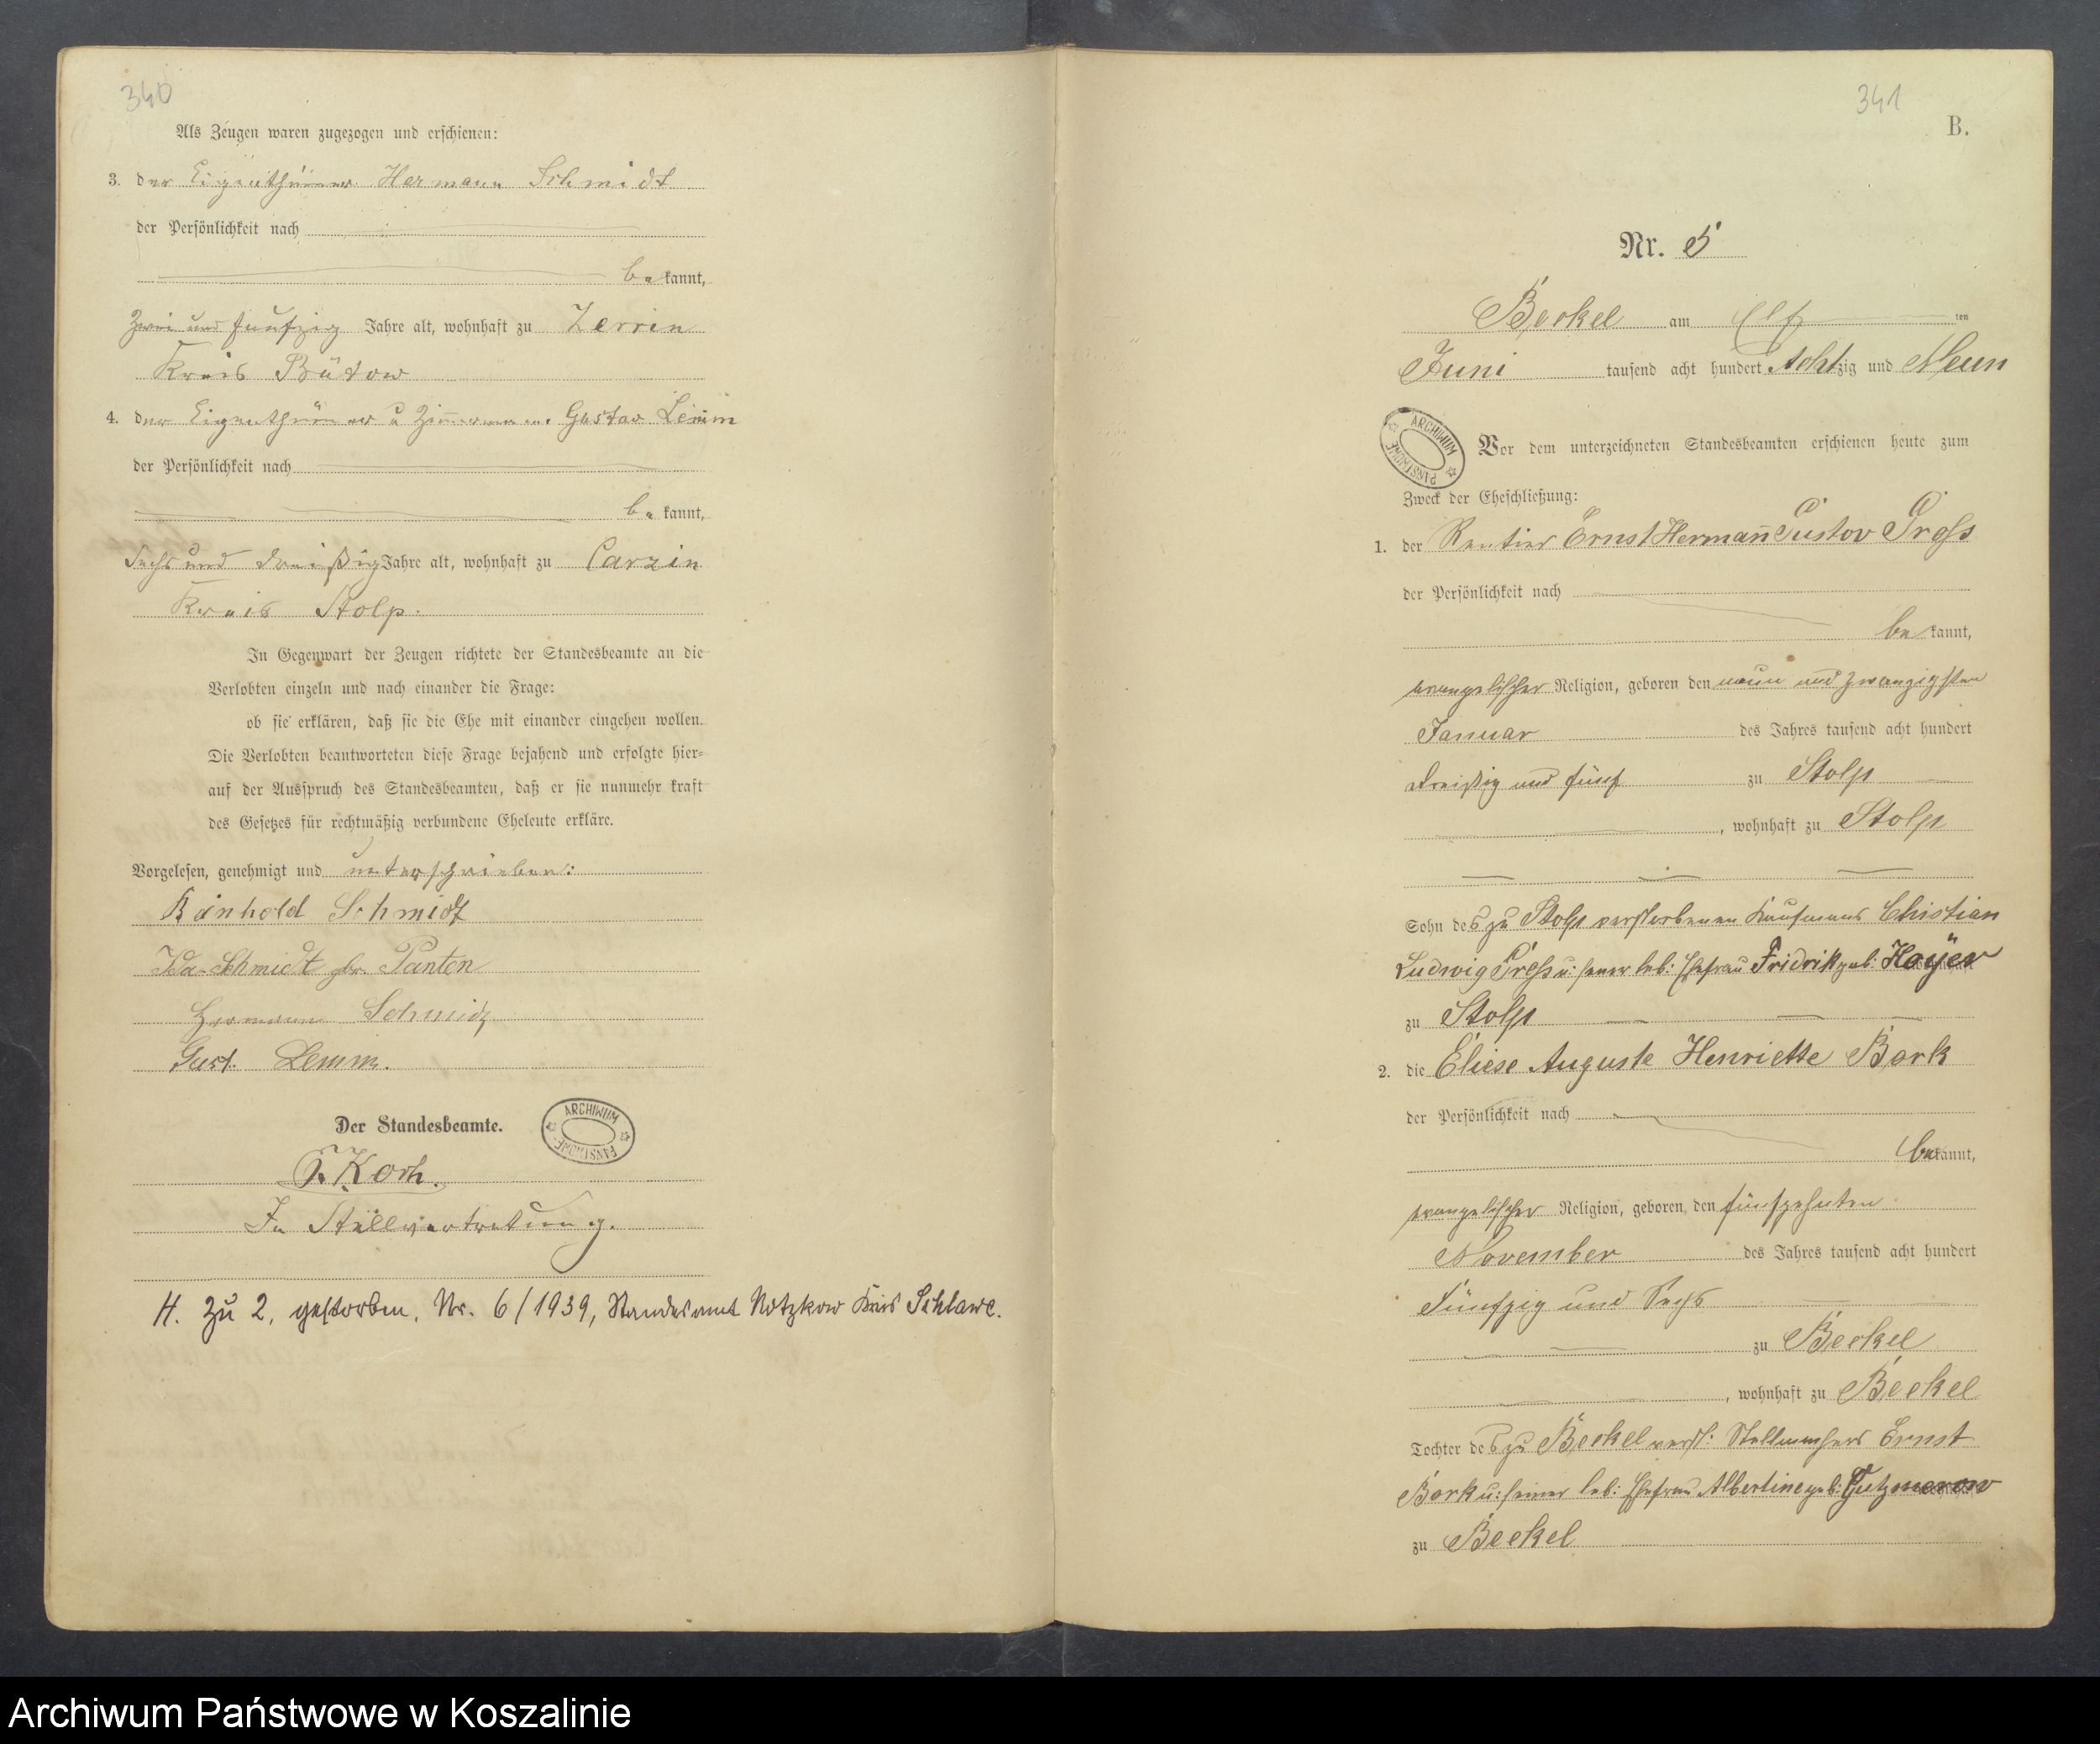 340
Als Zeugen waren zugezogen und erschienen:
3. der Eigenthümer Hermann Schmidt
der Persönlichkeit nach
be kannt,
zwei und funfzig Jahre alt, wohnhaft zu Zerrin
Kreis Bütow
4. der Eigenthümer u Zimmermann Gustav Lemm
der Persönlichkeit nach
be kannt,
sechs und dreißig Jahre alt, wohnhaft zu Carzin
Kreis Stolp.
In Gegenwart der Zeugen richtete der Standesbeamte an die
Verlobten einzeln und nach einander die Frage:
ob sie erklären, daß sie die Ehe mit einander eingehen wollen.
Die Verlobten beantworteten diese Frage bejahend und erfolgte hier-
auf der Ausspruch des Standesbeamten, daß er sie nunmehr kraft
des Gesetzes für rechtmäßig verbundene Eheleute erkläre.
Vorgelesen, genehmigt und unterschrieben:
Reinhold Schmidt
Ida Schmidt geb. Panten
Hermann Schmidt
Gust. Lemm.
Der Standesbeamte.
ARCHIWUM PAŃSTWOWE
Koch.
In Stellvertretung.
H. Zu 2. gestorben. Nr. 6/1939, Standesamt Notzkow Kreis Schlawe.
341
B.
Nr. 5
Beckel am Elf ten
Juni tausend acht hundert Achtzig und Neun
ARCHIWUM PAŃSTWOWE
Vor dem unterzeichneten Standesbeamten erschienen heute zum
Zweck der Eheschließung:
1. der Rentier Ernst Hermann Gustav
der Persönlichkeit nach
be kannt,
evangelischer Religion, geboren den neun und zwanzigsten
Januar des Jahres tausend acht hundert
dreißig und fünf zu Stolp
, wohnhaft zu Stolp
Sohn des zu Stolp verstorbenen Kaufmanns Christian
Ludwig u: seiner leb: Ehefrau Fridrik geb: Hayer
zu Stolp
2. die Eliese Auguste Henriette Bork
der Persönlichkeit nach
bekannt,
evangelischer Religion, geboren den fünfzehnten
November des Jahres tausend acht hundert
Fünfzig und Sechs
zu Beckel
, wohnhaft zu Beckel
Tochter des zu Beckel verst: Stellmachers Ernst
Bork u: seiner leb: Ehefrau Albertine geb: Gutzmerow
zu Beckel
Archiwum Państwowe w Koszalinie